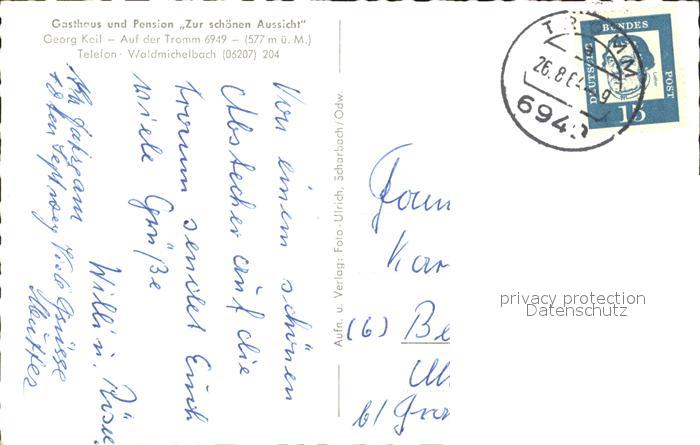 Gasthaus und Pension „Zur schönen Aussicht"
Georg Keil – Auf der Tromm 6949 – (577 m ü. M.)
Telefon · Waldmichelbach (06207) 204
Von einem schönen
Abstecher auf die
Tromm sendet Euch
viele Grüße
Willi u.
Viele Grüsse
Mutter
Aufn. u. Verlag: Foto-Ulrich, Scharbach/Odw.
Fam
Kar
(6) Be
b/
TROMM
26.8.6
694
DEUTSCHE
BUNDES
POST
15
privacy protection
Datenschutz